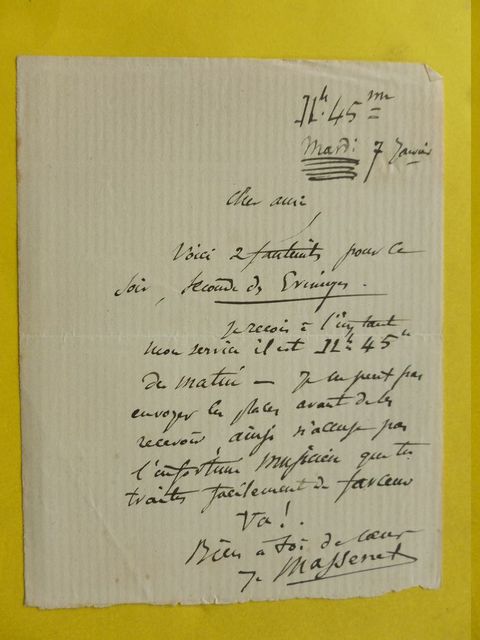 11h.45m
Mardi 7 Janvier
Cher ami
Voici 2 fauteuils pour ce
soir, seconde des Erinnyes.
Je reçois à l'instant
mon service il est 11h.45m
du matin — Je ne peux pas
envoyer les places avant de les
recevoir ainsi n'accuse pas
l'infortuné musicien que tu
traites facilement de farceur
Va!
Bien à toi de cœur
J. Massenet